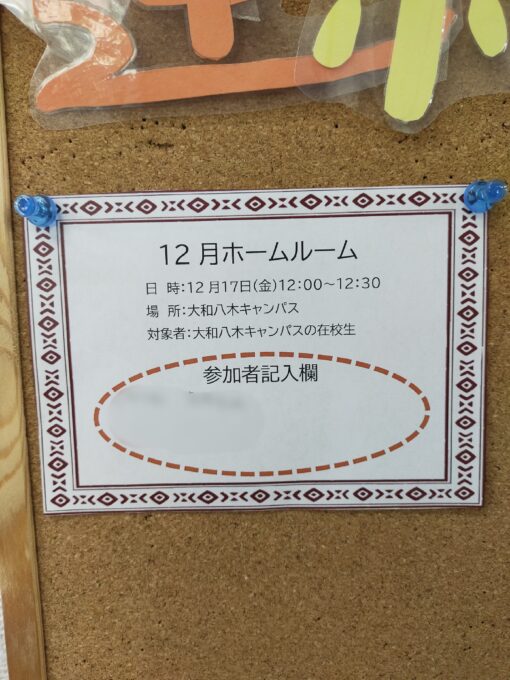 12月ホームルーム
日 時:12月17日(金)12:00～12:30
場 所:大和八木キャンパス
対象者:大和八木キャンパスの在校生
参加者記入欄